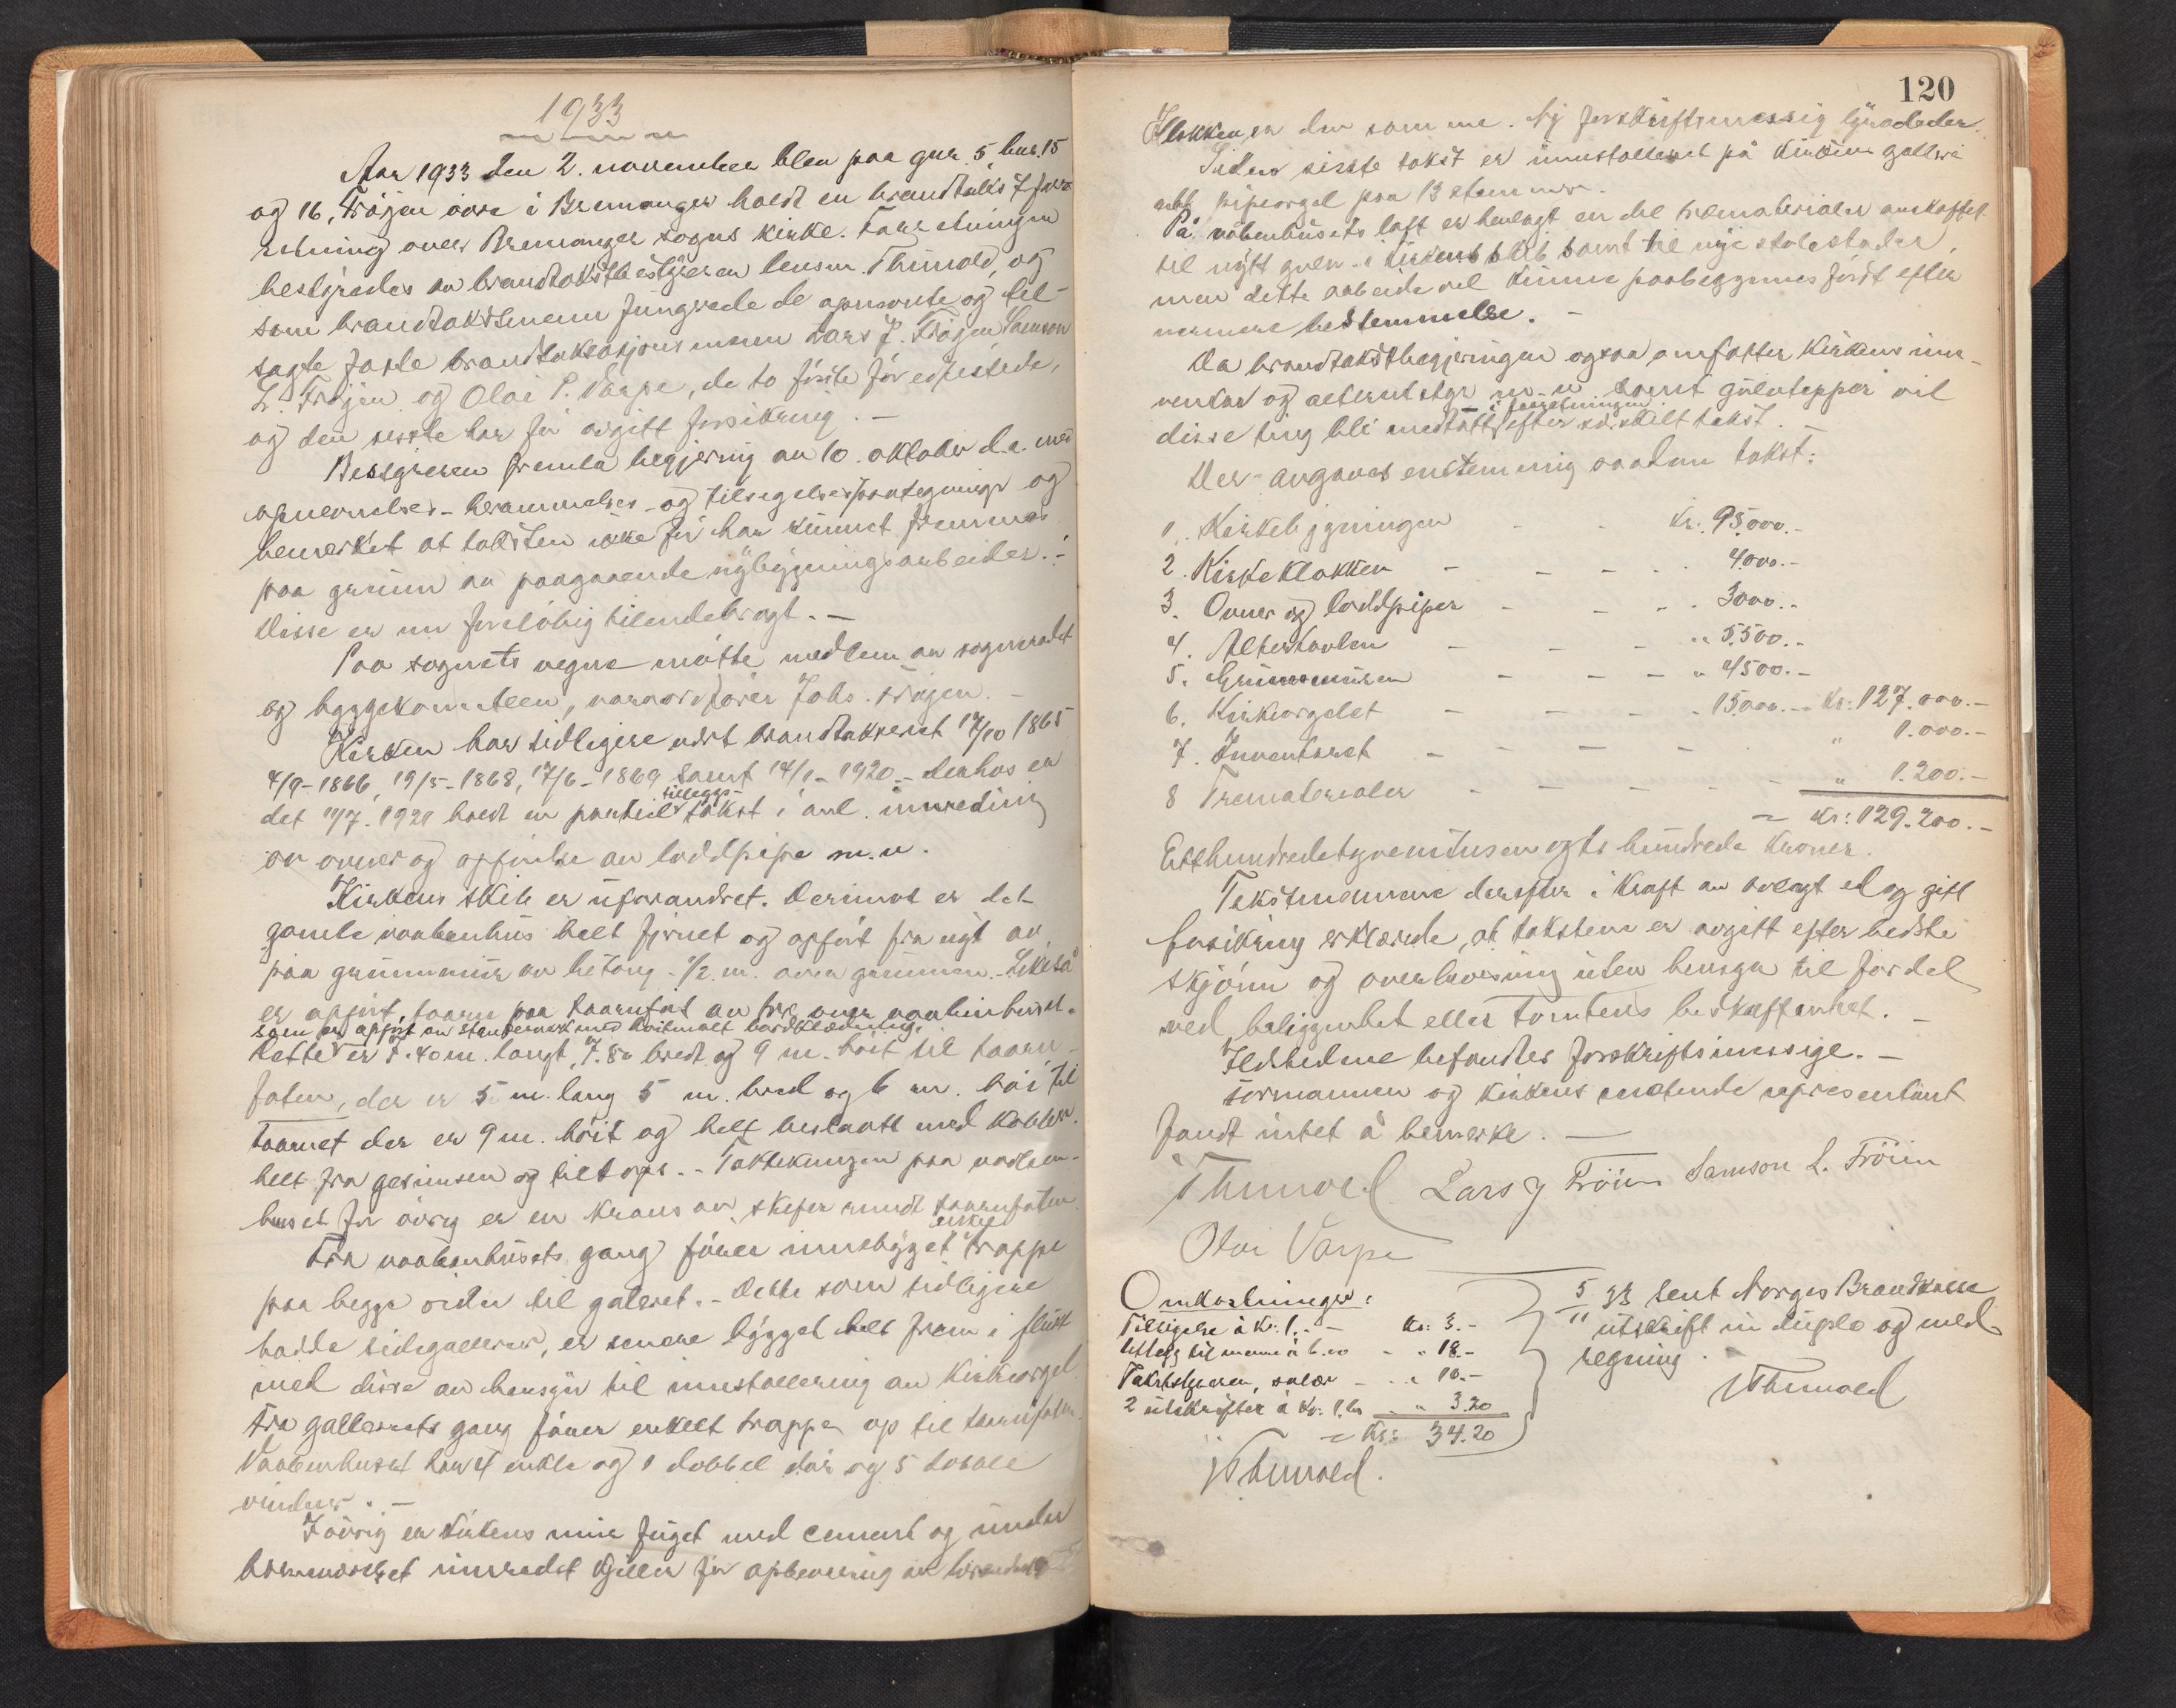 1933
Aar 1933 den 2. november blev paa gnr. 5, bnr. 15
og 16, Frøjen øvre i Bremanger holdt en brandtakstforr-
retning over Bremanger sogns kirke. Forretningen
bestyredes av brandtakstbestyreren lensm. Thunold, og
som brandtakstmenn fungerede de opnevnte og til-
sagte faste brandtaksasjonsmenn Lars J. Frøjen Samson
L. Frøjen og Olai P. Varpe, de to første før edfestede,
og den sisste har før avgitt forsikring. —
Bestyreren fremla begjering av 10. oktober d.a. med
opnevnelses- berammelses- og tilsigelsespaategninger og
bemerket at taksten ikke før har kunnet fremmes
paa grunn av paagaaende nybygningsarbeider. -
Disse er nu foreløbig tilendebragt. —
Paa sognets vegne møtte medlem av sogneradet
og byggekomiteen, varaordfører Johs. Frøjen. —
Kirken har tidligere vært brandtaksert 17/10 1865
4/9-1866, 19/5-1868, 17/6-1869 samt 14/1-1920. - derhos er
tilleggs-
det 11/7. 1921 holdt en partiel takst i anl. innreding
av ovner og opførelse av loddpipe m.v.
Kirkens skib er uforandret. Derimot er det
gamle vaabenhus helt fjernet og opført fra nyt av
paa grunnmur av betong - 1/2 m. over grunnen. - Likeså
er opført taarn paa taarnfot av tre over vaabenhuset.
som er opført av stenderverk med hvitmalt bordklædning.
Dette er 7.40 m. langt, 7.80 bredt og 9 m. høit til taarn-
foten, der er 5 m. lang 5 m. bred og 6 m. høi til
taarnet der er 9 m. høit og helt beslaatt med kobber.
helt fra gesimsen og til tops. - Taktekningen paa vaaben-
huset for øvrig er en krans av skifer rundt taarnfoten
enkel
Fra vaabenhusets gang fører innebygget trappe
paa begge sider til galeriet. - Dette som tidligere
hadde sidegallerier, er senere bygget helt fram i flukt
med disse av hensyn til innstallering av kirkeorgel
Fra galleriets gang fører enkelt trappe op til taarnfoten.
Vaabenhuset har 4 enkle og 1 dobbel dør og 5 doble
vinduer. —
Forøvrig er kirkens mur fuget med cement og under
innredet kjeller for opbevaring av
120
Klokken er den samme. Ny forskriftsmessig lynavleder.
Siden sisste takst er innstallert på kirkens galleri
ett pipeorgel paa 13 stemmer.
På våbenhusets loft er henlagt en del trematerialer anskaffet
til nytt gulv i kirkens skib samt til nye stolestader,
men dette arbeide vil kunne paabegynnes først efter
nermere bestemmelse. —
Da brandtakstbegjeringen ogsaa omfatter kirkens inn-
ventar og alterutstyr m.v. samt gulvtepper vil
i forretningen
disse ting bli medtatt efter særskilt takst. —
Der avgaves enstemmig saadan takst:
1. Kirkebygningen - - kr. 95.000.-
2. Kirkeklokken - - - - 4000.-
3. Ovner og loddpiper - - - 3000.-
4. Altertavlen - - - " 5.500.-
5. Grunnmuren - - - " 4500.-
6. Kirkeorgelet - - - 15.000.- kr: 127.000.-
7. Inventaret - - - - " 1.000.-
8 Trematerialer - - - - " 1.200.-
= kr: 129.200.-
Etthundredetyvenitusen og to hundrede kroner.
Takstmennene derefter i kraft av avlagt ed og gitt
forsikring erklærede, at taksten er avgitt efter bedste
skjønn og overbevisning uten hensyn til fordel
ved beliggenhet eller tomtens beskaffenhet. —
Ildstedene befandtes forskriftsmessige. —
Formannen og kirkens møtende representant
fandt intet å bemerke. —
Thunold Lars J Frøien Samson L. Frøien
Olai Varpe
Omkostninger:
Tilsigelse à kr. 1.- - kr: 3.-
Utlegg til menn à 6.00 - " 18.-
Takstbestyreren, salær - " 10.-
2 utskrifter à kr. 1.60 - " 3.20
= Kr: 34.20
Thunold.
5/11 33 sent Norges Brandkasse
utskrift in duplo og med
regning.
Thunold